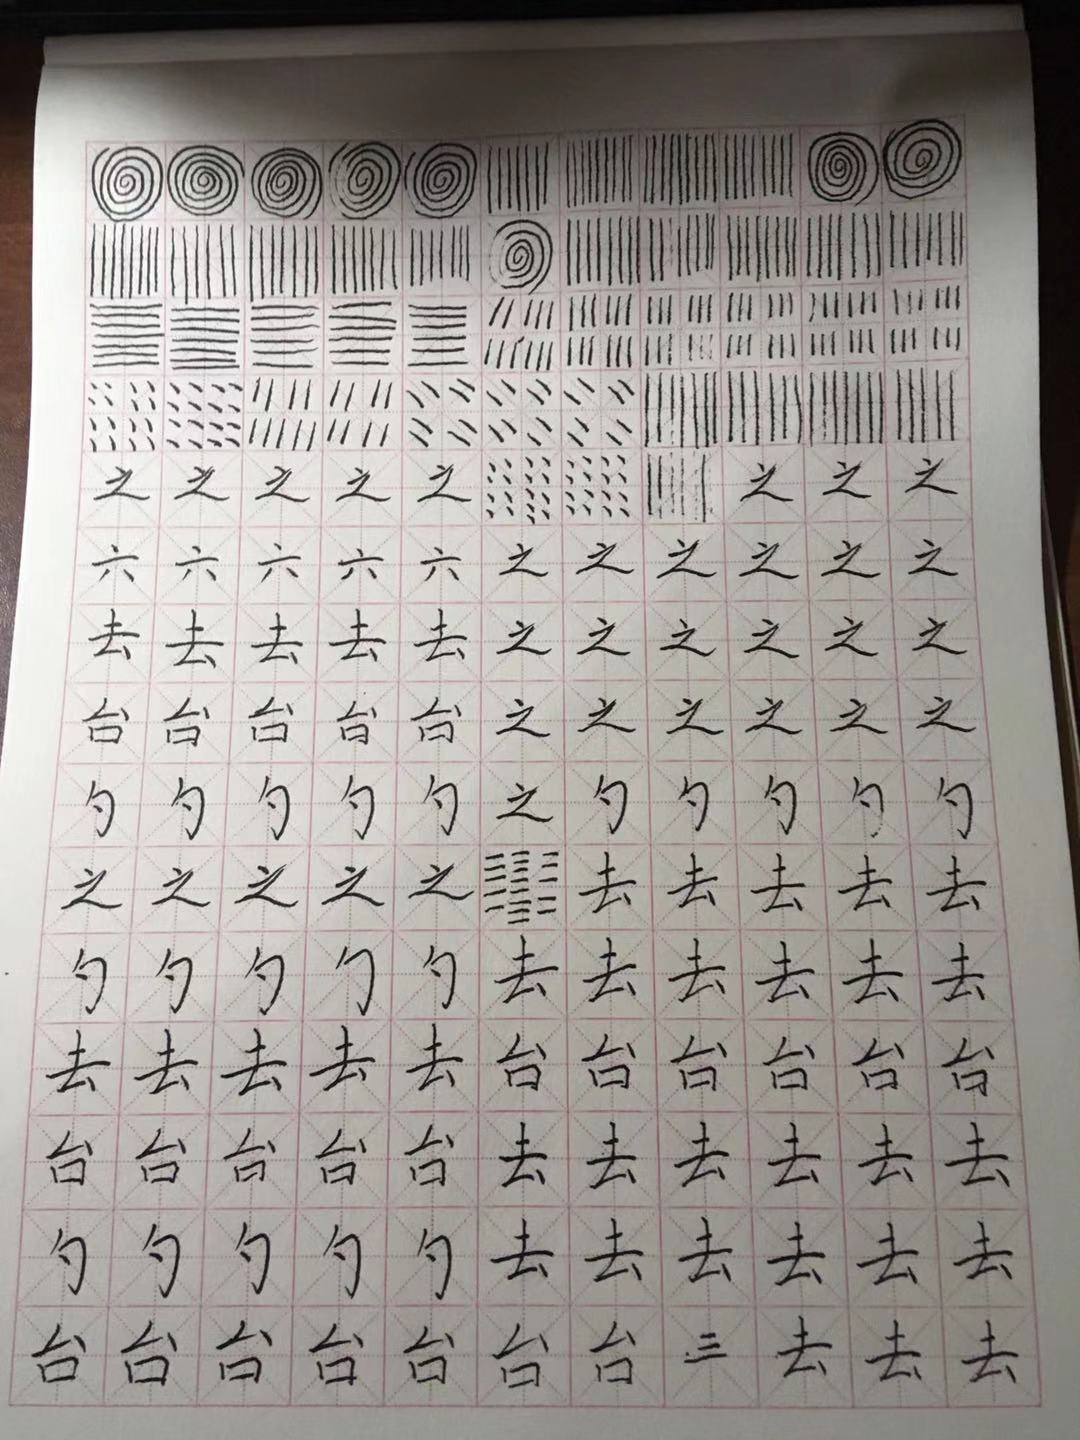 之之之之之之之之
六六六六六之之之之之之
去去去去去之之之之之之
台台台台台之之之之之之
勺勺勺勺勺之勺勺勺勺勺
之之之之之去去去去去
勺勺勺勺勺去去去去去去
去去去去去台台台台台台
台台台台台去去去去去去
勺勺勺勺勺去去去去去去
台台台台台台台三去去去